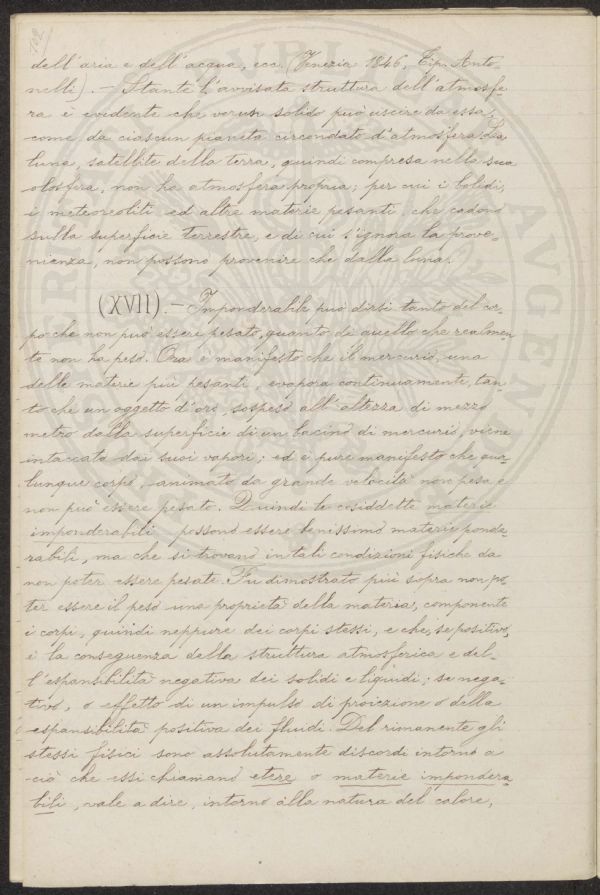 102
dell'aria e dell'acqua, ecc. (Venezia 1846, Tip. Anto-
nelli). — Stante l'avvisata struttura dell'atmosfe
ra è evidente che verun solido può uscire da essa,
come da ciascun pianeta circondato d'atmosfera. La
luna, satellite della terra, quindi compresa nella sua
olosfera, non ha atmosfera propria; per cui i bolidi,
i meteoreoliti ed altre materie pesanti che cadono
sulla superficie terrestre, e di cui s'ignora la prove-
nienza, non possono provenire che dalla luna.
(XVII). — Imponderabile può dirsi tanto del cor-
po che non può essere pesato, quanto di quello che realmen-
te non ha peso. Ora è manifesto che il mercurio, una
delle materie più pesanti, evapora continuamente, tan-
to che un oggetto d'oro sospeso all'altezza di mezzo
metro dalla superficie di un bacino di mercurio, viene
intaccato dai suoi vapori; ed è pure manifesto che qua-
lunque corpo, animato da grande velocità non pesa e
non può essere pesato. Quindi le cosiddette materie
imponderabili possono essere benissimo materie ponde-
rabili, ma che si trovano in tali condizioni fisiche da
non poter essere pesate. Fu dimostrato più sopra non po
ter essere il peso una proprietà della materia, componente
i corpi, quindi neppure dei corpi stessi, e che, se positivo,
è la conseguenza della struttura atmosferica e del-
l'espansibilità negativa dei solidi e liquidi; se nega-
tivo, o effetto di un impulso di proiezione o della
espansibilità positiva dei fluidi. Del rimanente gli
stessi fisici sono assolutamente discordi intorno a
ciò che essi chiamano etere o materie impondera
bili, vale a dire, intorno alla natura del calore,